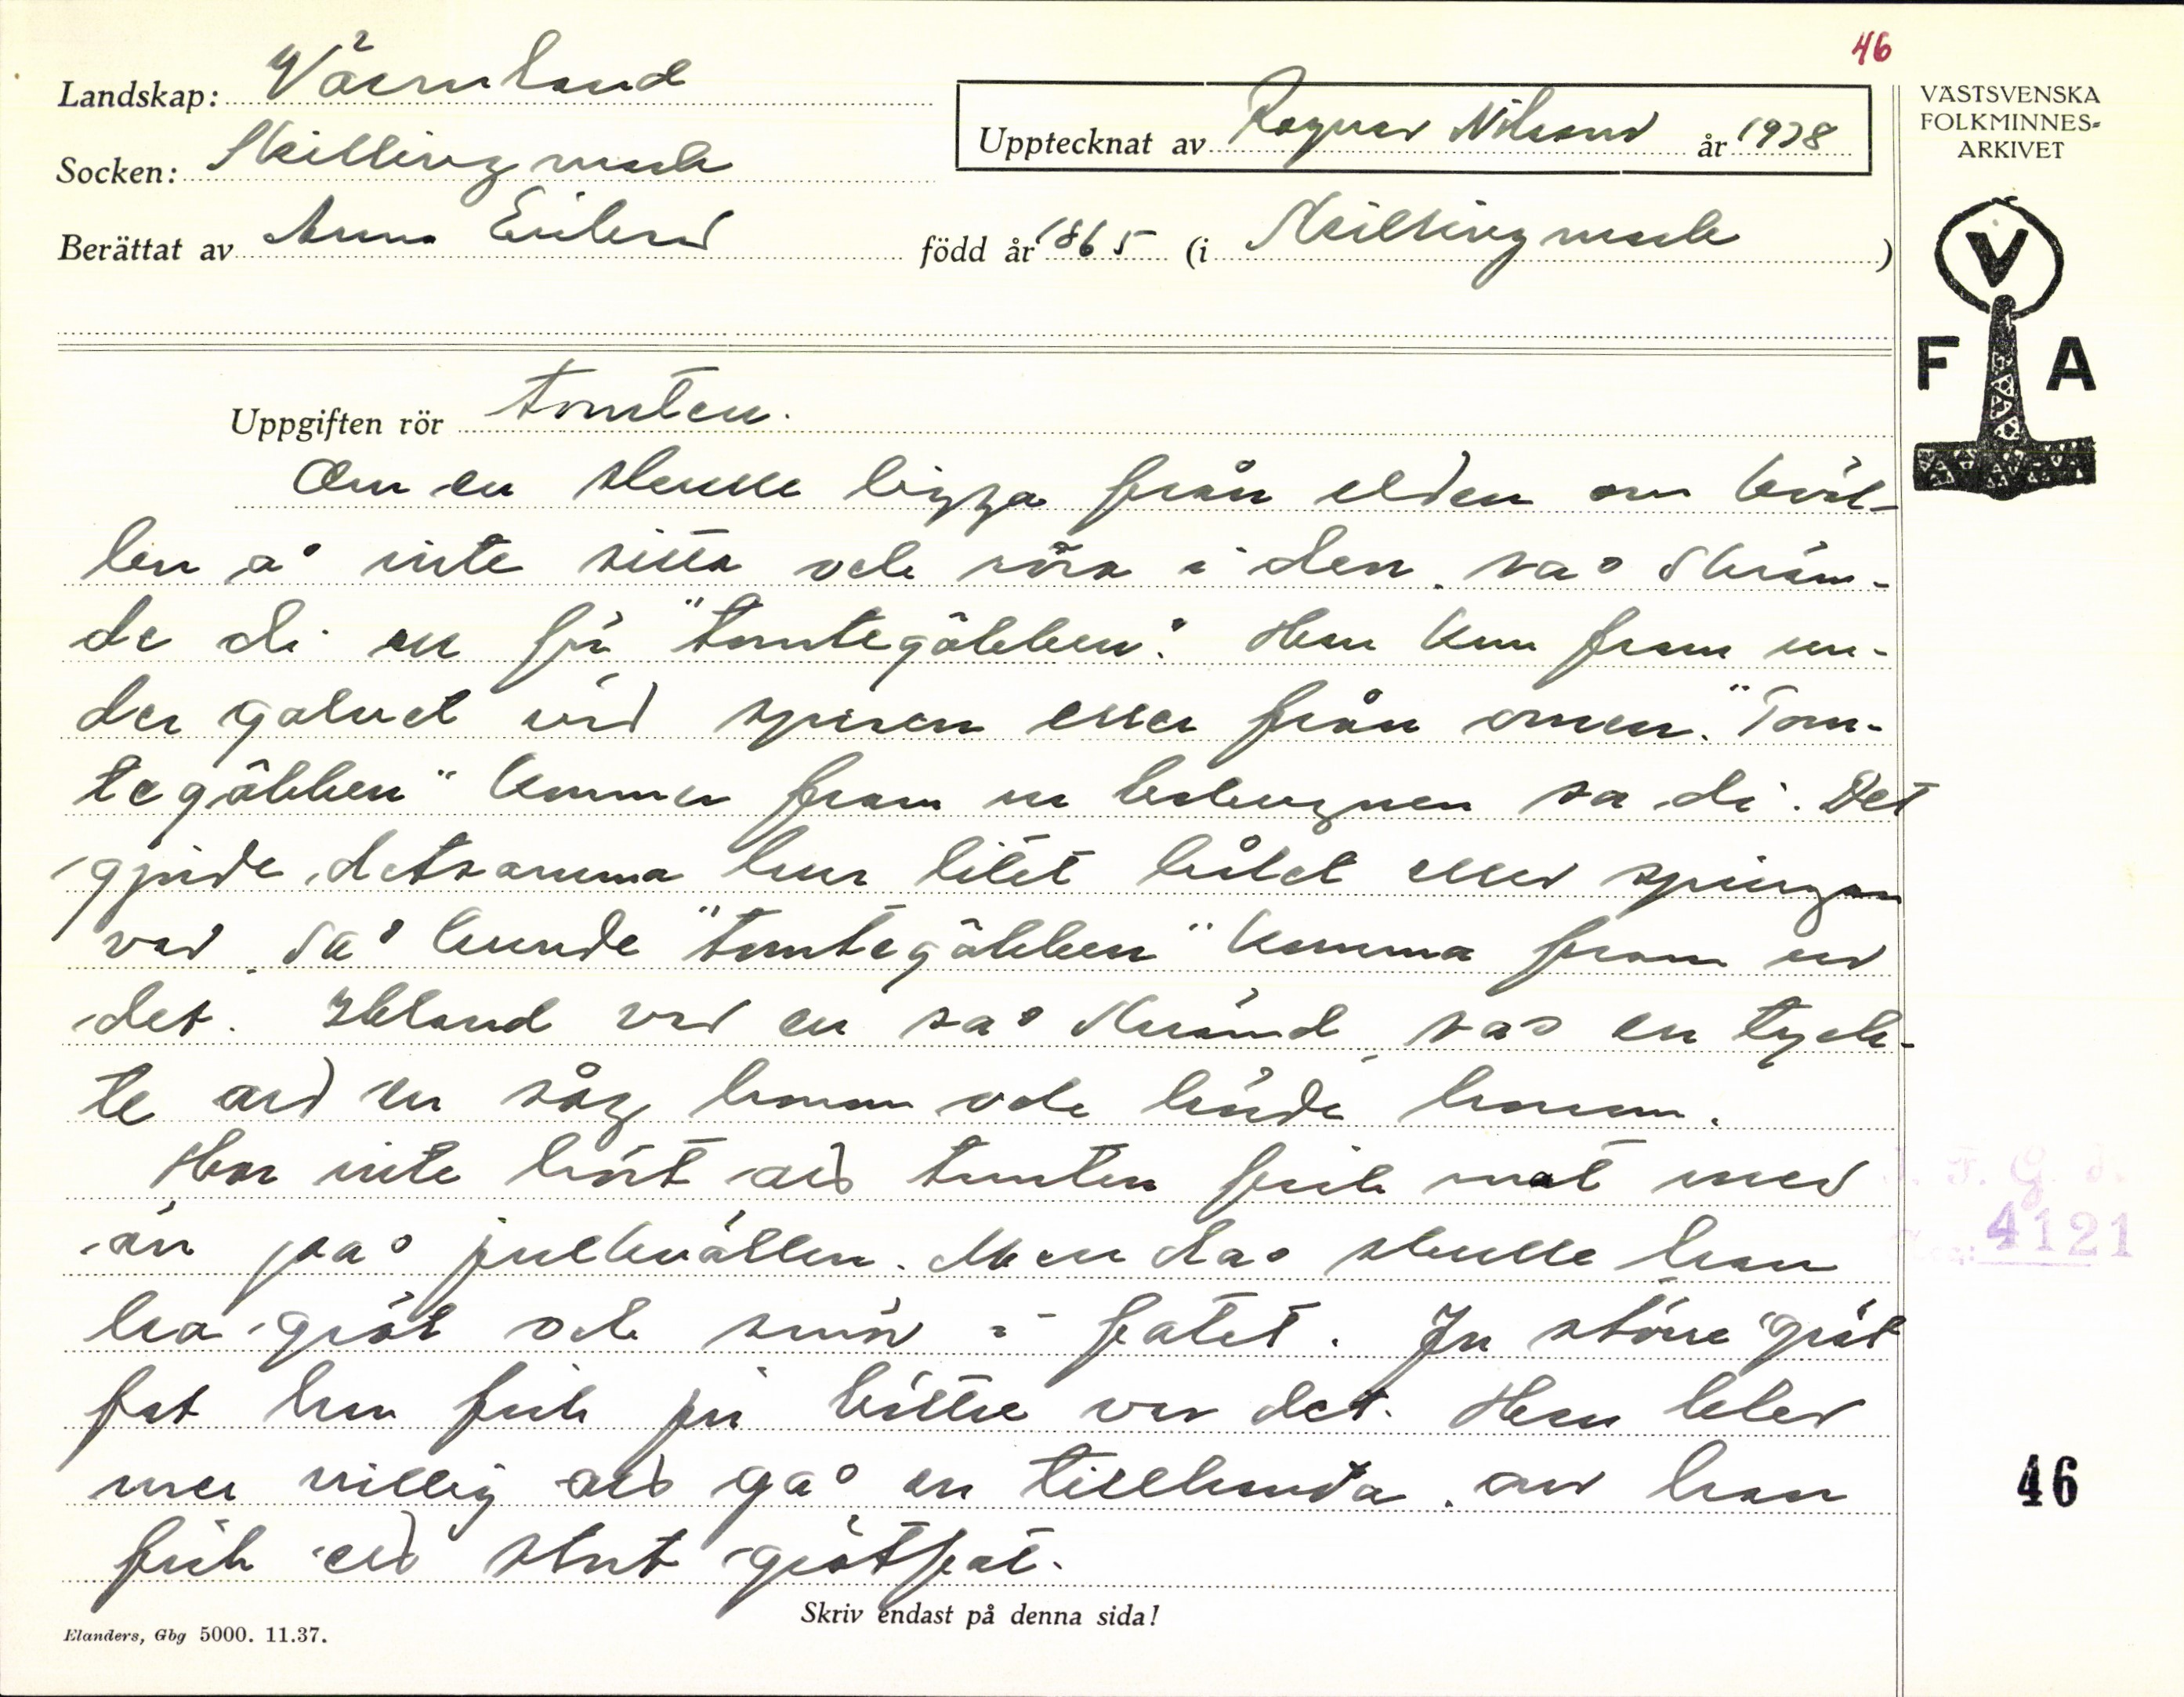 46
Landskap: Värmland
Upptecknat av Ragnar Nilsson år 1938
Socken: Skillingmark
Berättat av Anna Eriksson född år 1865 (i Skillingmark)
VÄSTSVENSKA
FOLKMINNES-
ARKIVET
V
F A
Uppgiften rör tomten.
Om en skulle ligga från elden om kväl-
len å inte sitta och röra i den, så skräm-
de di en för "tomtegubben". Han kom fram un-
der golvet vid spisen eller från ômen. "Tom-
tegubben" kommer fram ur sa di. Det
gjorde detsamma hur litet hålet eller springan
var, så kunde "tomtegubben" komma fram ur
det. Ibland var en så skrämd, så en tyck-
te att en såg honom och hörde honom.
Har inte hört att tomten fick mat mer
än på julkvällen. Men då skulle han
ha gröt och smör i fatet. Ju större gröt
fat han fick ju bättre var det. Han blev
mer villig att gå en tillhanda, om han
fick ett stort grötfat.
I. F. G. H.
Acc: 4121
46
Skriv endast på denna sida!
Elanders, Gbg 5000. 11.37.